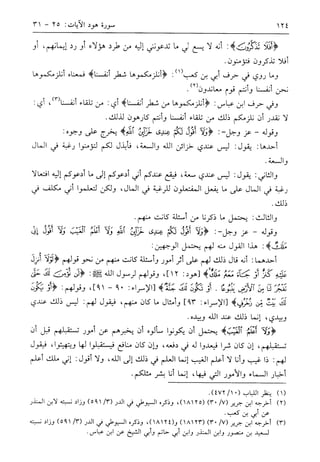 ١٢٤ سورة هود الآيات: ٢٥ - ٣١
﴿أَفَلَا تَذَكَّرُونَ﴾: أنه لا يسع لي ما تدعونني إليه من طرد هؤلاء أو رد إيمانهم، أو
أفلا تذكرون فتؤمنون.
وما روي في حرف أبي بن كعب(١): ﴿أنلزمكموها شطر أنفسنا﴾ فمعناه أنلزمكموها
نحن أنفسنا وأنتم قوم معاندون(٢)
وفي حرف ابن عباس: ﴿أنلزمكموها من شطر أنفسنا﴾ أي: من تلقاء أنفسنا(٣)، أي:
لا نقدر أن نلزمكم ذلك من تلقاء أنفسنا وأنتم كارهون لذلك.
وقوله - عز وجل -: ﴿وَلَا أَقُولُ لَكُمْ عِندِى خَزَآئِنُ اللَّهِ﴾ يخرج على وجوه:
أحدها: يقول: ليس عندي خزائن الله والسعة، فأبذل لكم لتؤمنوا رغبة في المال
والسعة.
والثاني: يقول: ليس عندي سعة، فيقع عندكم أني أدعوكم إلى ما أدعوكم إليه افتعالا
رغبة في المال على ما يفعل المفتعلون للرغبة في المال، ولكن لتعلموا أني مكلف في
ذلك.
والثالث: يحتمل ما ذكرنا من أسئلة كانت منهم.
وقوله - عز وجل-: ﴿وَلَا أَقُولُ لَكُمْ عِندِى خَزَآئِنُ اللَّهِ وَلَا أَعْلَمُ الْغَيْبَ وَلَا أَقُولُ إِنِّى
مَلَكٌ﴾: هذا القول منه لهم يحتمل الوجهين:
أحدهما: أنه قال ذلك لهم على أثر أمور وأسئلة كانت منهم من نحو قولهم ﴿لَوْلَا أُنزِلَ
عَلَيْهِ كَنزٌ أَوْ جَآءَ مَعَهُ مَلَكٌ﴾ [هود: ١٢]، وقولهم لرسول الله ﷺ: ﴿لَن نُّؤْمِنَ لَكَ حَتَّىٰ
تَفْجُرَ لَنَا مِنَ الْأَرْضِ يَنۢبُوعًا . أَوْ تَكُونَ لَكَ جَنَّةٌ﴾ [الإسراء: ٩٠ - ٩١]، وقولهم: ﴿أَوْ يَكُونَ
لَكَ بَيْتٌ مِّن زُخْرُفٍ﴾ [الإسراء: ٩٣] وأمثال ما كان منهم، فيقول لهم: ليس ذلك عندي
وبيدي، إنما ذلك عند الله وبيده.
﴿وَلَا أَعْلَمُ الْغَيْبَ﴾ يحتمل أن يكونوا سألوه أن يخبرهم عن أمور تستقبلهم قبل أن
تستقبلهم، إن كان شرا فيعدوا له في دفعه، وإن كان منافع فيستقبلوا لها ويتهيئوا، فيقول
لهم: ذا غيب وأنا لا أعلم الغيب إنما العلم في ذلك إلى الله، ولا أقول: إني ملك أعلم
أخبار السماء والأمور التي فيها، إنما أنا بشر مثلكم.
(١) ينظر اللباب (٤٧٢/١٠).
(٢) أخرجه ابن جرير (٣٠/٧) (١٨١٢٥)، وذكره السيوطي في الدر (٥٩١/٣) وزاد نسبته لابن المنذر
عن أبي بن كعب.
(٣) أخرجه ابن جرير (٣٠/٧) (١٨١٢٣) و(١٨١٢٤)، وذكره السيوطي في الدر (٥٩١/٣) وزاد نسبته
لسعيد بن منصور وابن المنذر وابن أبي حاتم وأبي الشيخ عن ابن عباس.